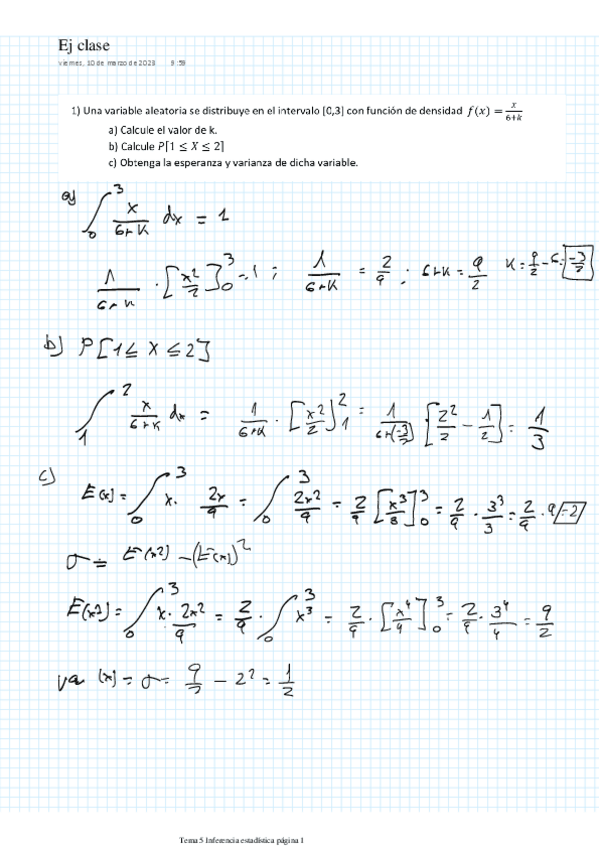 Ej clase
viernes, 10 de marzo de 2023 9:59
1) Una variable aleatoria se distribuye en el intervalo [0,3] con función de densidad f(x) = x/(6+k)
a) Calcule el valor de k.
b) Calcule P[1 ≤ X ≤ 2]
c) Obtenga la esperanza y varianza de dicha variable.
a) ∫₀³ x/(6+K) dx = 1
1/(6+K) · [x²/2]₀³ = 1 ; 1/(6+K) = 2/9 ; 6+K = 9/2 K = 9/2 - 6 = -3/2
b) P[1 ≤ X ≤ 2]
∫₁² x/(6+K) dx = 1/(6+K) · [x²/2]₁² = 1/(6+(-3/2)) [2²/2 - 1/2] = 1/3
c) E(x) = ∫₀³ x · 2x/9 = ∫₀³ 2x²/9 = 2/9 [x³/3]₀³ = 2/9 · 3³/3 = 2/9 · 9 = 2
σ = E(x2) - (E(x))²
E(x2) = ∫₀³ x · 2x²/9 = 2/9 · ∫₀³ x³ = 2/9 · [x⁴/4]₀³ = 2/9 · 3⁴/4 = 9/2
va (x) = σ = 9/2 - 2² = 1/2
Tema 5 Inferencia estadística página 1